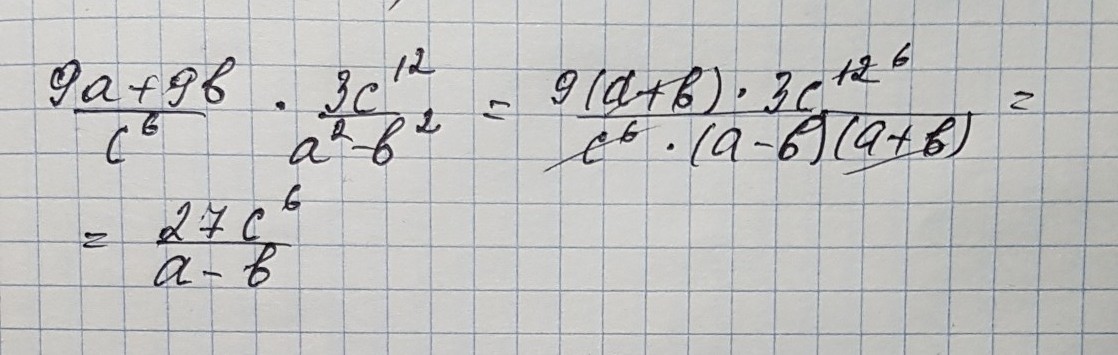 (9a+9b)/c⁶ · 3c¹²/(a²-b²) = (9(a+b)·3c¹²⁶)/(c⁶·(a-b)(a+b)) =
= 27c⁶/(a-b)